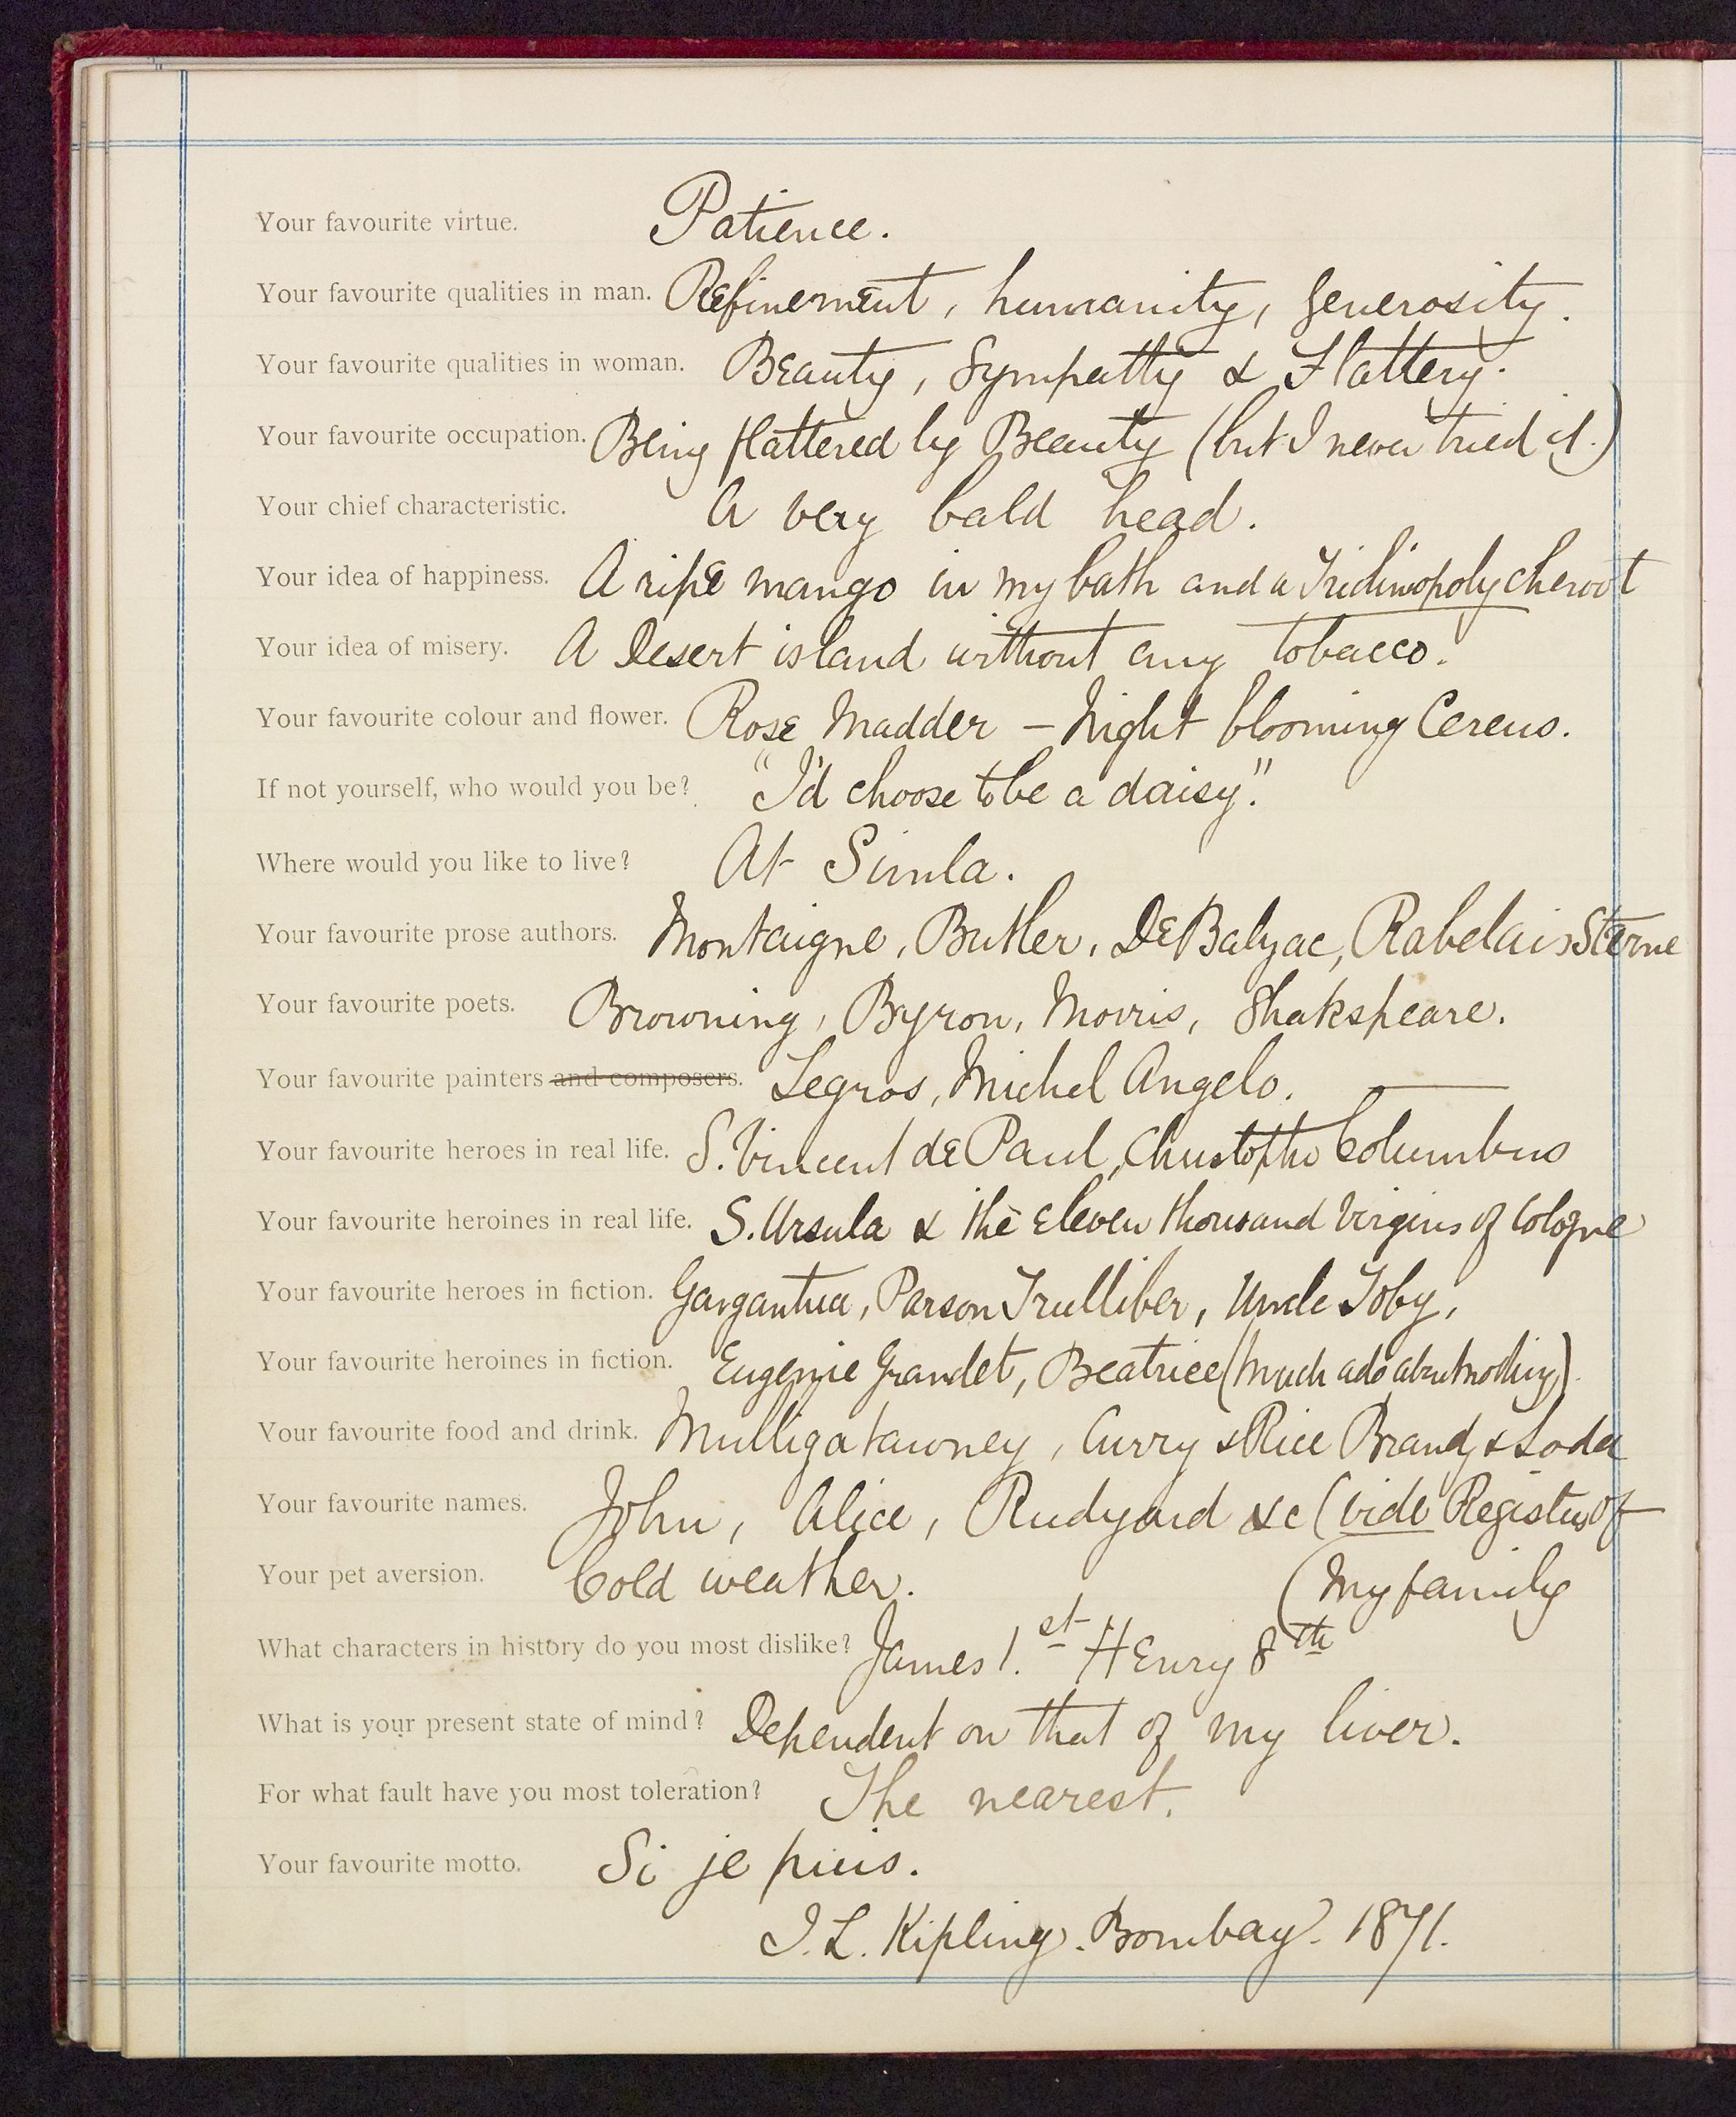 Your favourite virtue. Patience.
Your favourite qualities in man. Refinement, humanity, generosity.
Your favourite qualities in woman. Beauty, Sympathy & Flattery.
Your favourite occupation. Being flattered by Beauty (but I never tried it.)
Your chief characteristic. A very bald head.
Your idea of happiness. A ripe mango in my bath and a Trichinopoly cheroot
Your idea of misery. A Desert island without any tobacco.
Your favourite colour and flower. Rose Madder – Night blooming Cereus.
If not yourself, who would you be? "I'd choose to be a daisy."
Where would you like to live? At Simla.
Your favourite prose authors. Montaigne, Butler, De Balzac, Rabelais Sterne
Your favourite poets. Browning, Byron, Morris, Shakspeare.
Your favourite painters and composers. Legros, Michel Angelo. —
Your favourite heroes in real life. S. Vincent de Paul, Christopher Columbus
Your favourite heroines in real life. S. Ursula & the Eleven thousand Virgins of Cologne
Your favourite heroes in fiction. Gargantua, Parson Trulliber, Uncle Toby,
Your favourite heroines in fiction. Eugenie Grandet, Beatrice (Much ado about nothing).
Your favourite food and drink. Mulligatawney, Curry & Rice Brandy & Soda
Your favourite names. John, Alice, Rudyard &c (vide Registers of
Your pet aversion. Cold weather. (My family
What characters in history do you most dislike? James 1.st Henry 8th
What is your present state of mind? Dependent on that of my liver.
For what fault have you most toleration? The nearest.
Your favourite motto. Si je puis.
J. L. Kipling. Bombay. 1871.